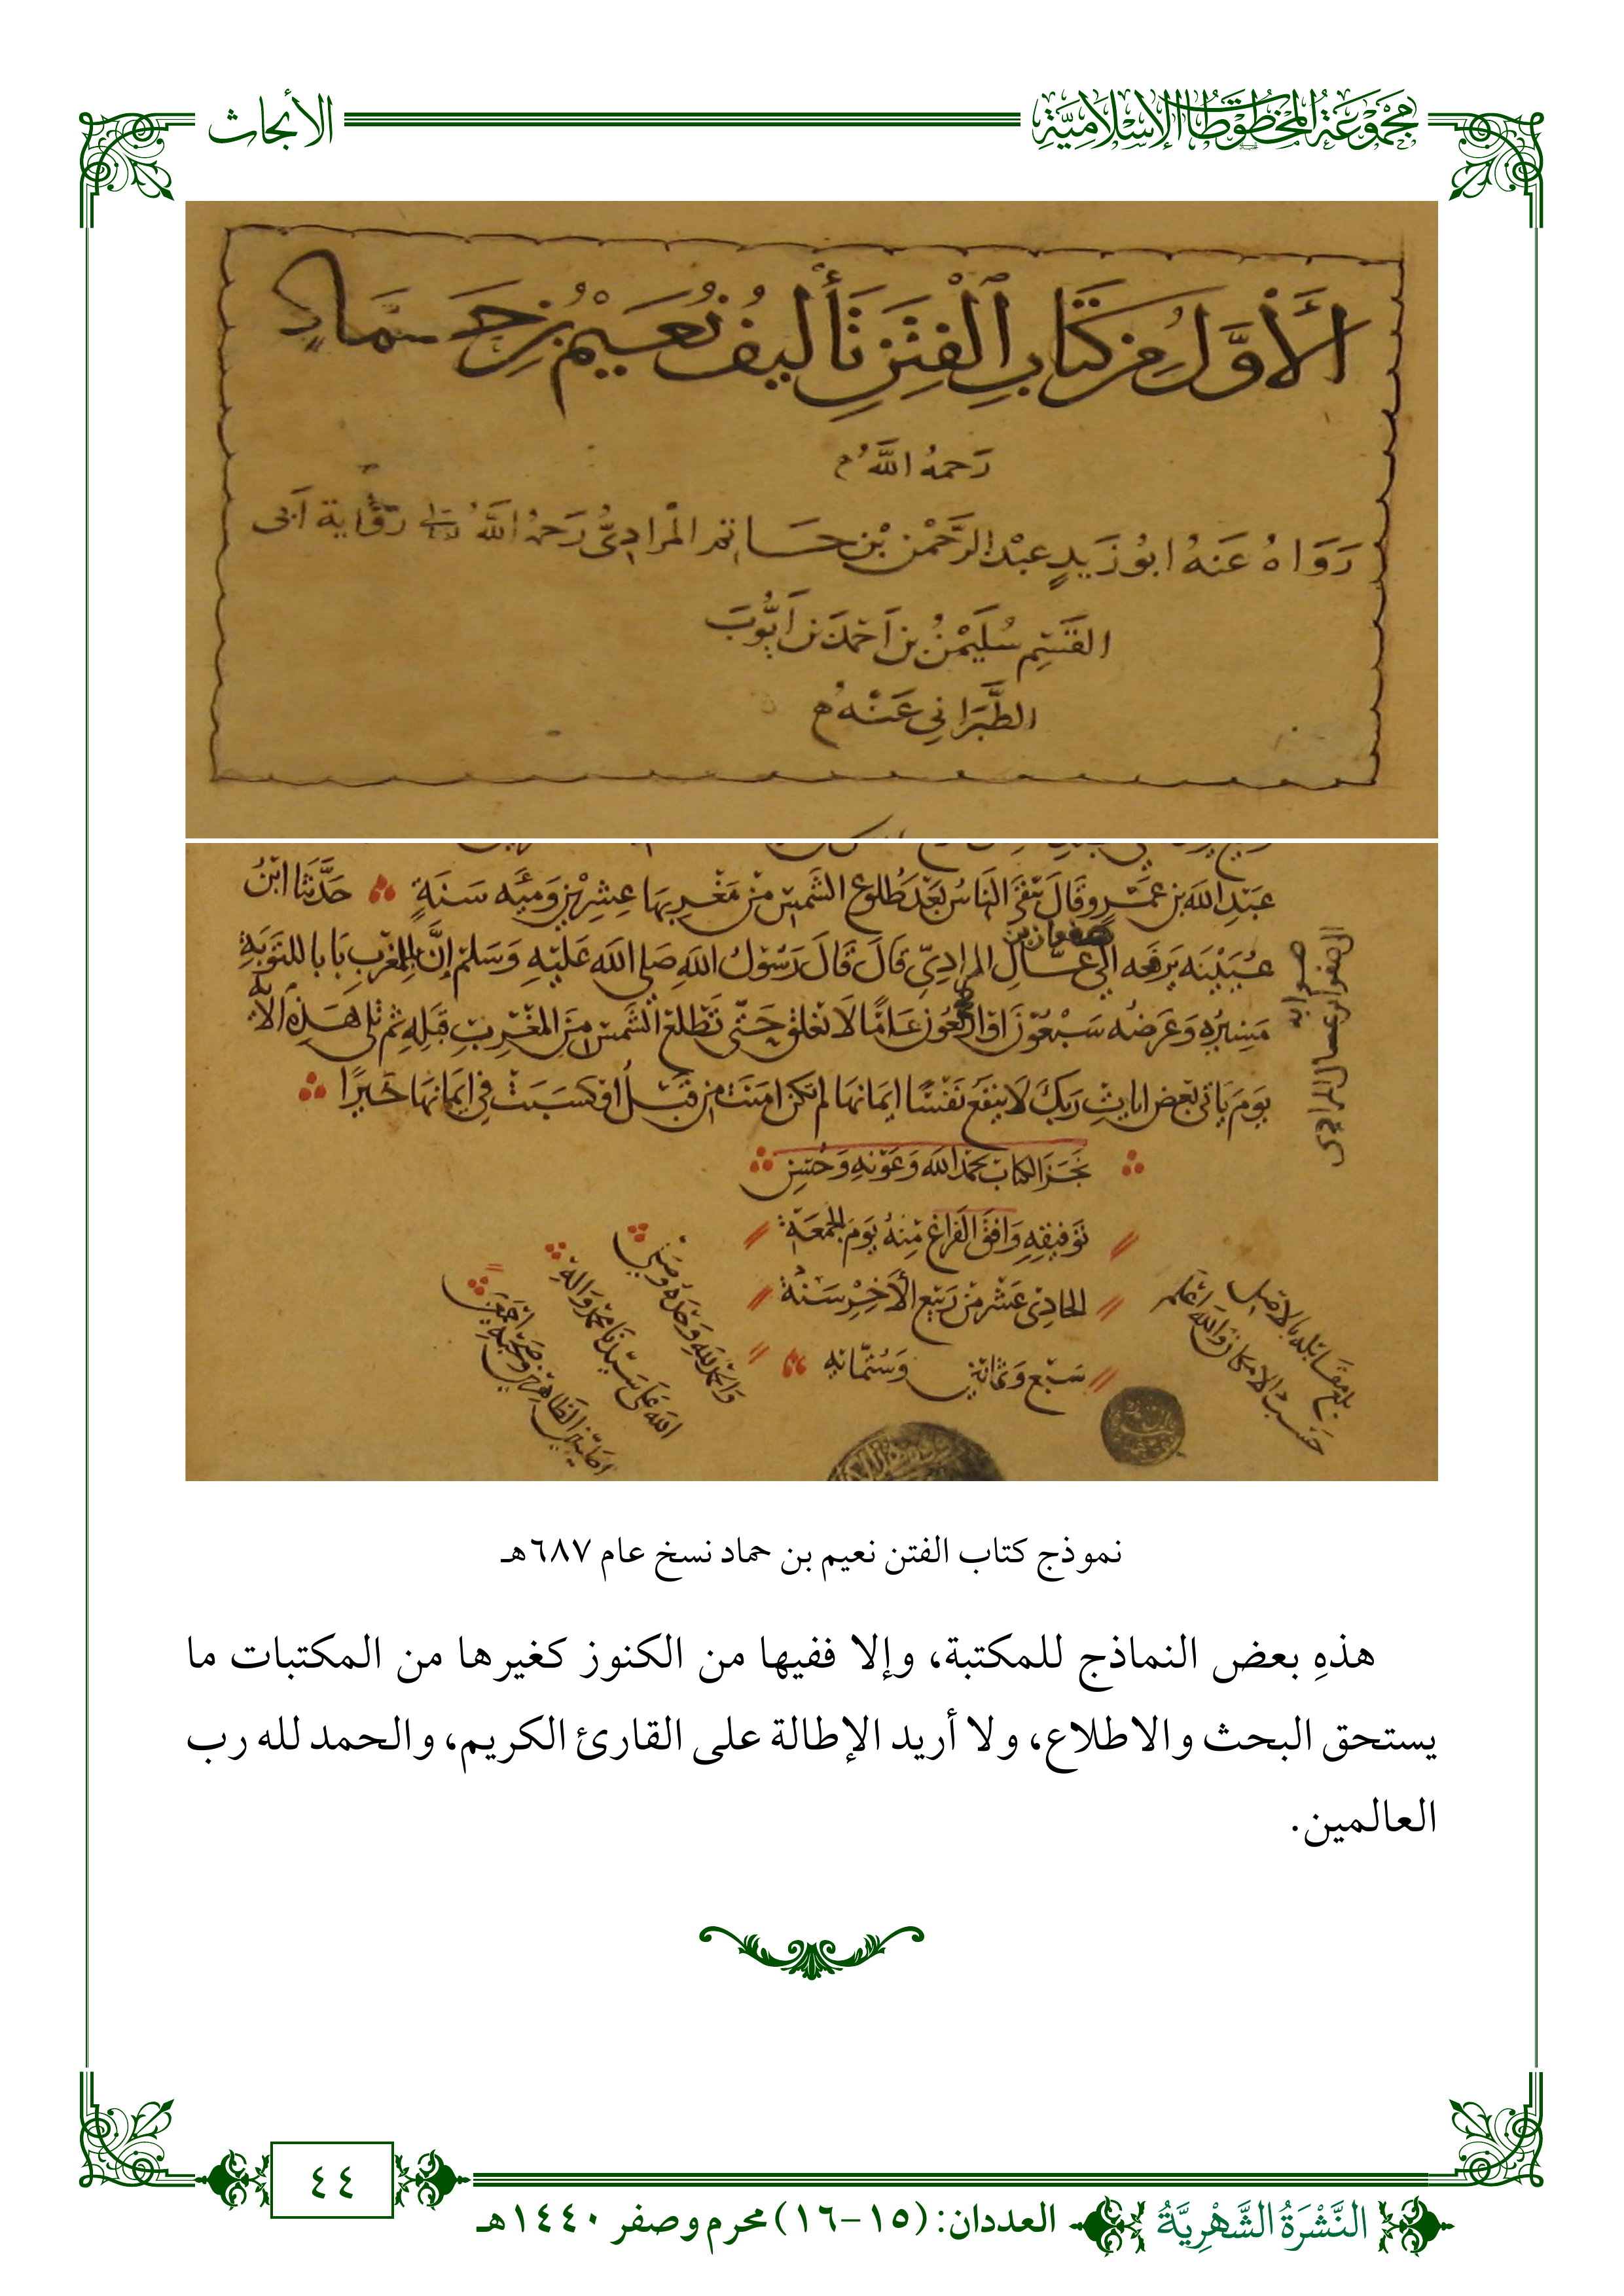 مَجْمُوعَةُ المَخْطُوطَاتِ الإِسْلَامِيَّةِ
الأبحاث
الأَوَّلُ مِن كِتَابِ الْفِتَنِ تَأْلِيفُ نُعَيْمُ بنِ حَمَّادٍ
رَحِمَهُ اللَّهُ
رَوَاهُ عَنهُ ابُو زَيدٍ عبْد الرَّحْمٰن بْن حَاتم المْرادِىُّ رَحِمَهُ اللَّهُ رِوَايَة اَبى
القٰسِم سُلَيْمٰنُ بن اَحمَدَ بن اَيُّوبَ
الطَّبَرَانِي عَنْهُ
عَبْدِ الله بن عَمْرٍو قَالَ يَبْقَى النَّاسُ بَعْدَ طُلُوعِ الشَّمسِ مِنْ مَغْرِبِهَا عِشْرِيْنَ وَمِيَه سَنَةٍ حَدَّثنَا ابْنُ
عُيَيْنَه يَرفَعه الَي صفوان بن عَسَّالِ المرادِيِّ قَالَ قَالَ رَسُوْلُ اللهِ صَلى الله عَلَيْهِ وَسَلم إنَّ بالمغربِ بَابا للتوْبَةِ
مَسِيْرُه وَعَرضُه سَبْعُوْنَ اوْ ارْبَعُونَ عَامًا لَا يَغْلق حَتّى تَطْلعَ الشَمسُ مِنَ المغْربِ قِبَلهِ ثم تلى هَذِه الآيَة
يَوْمَ يَاتي بَعْض ايَاتِ رَبكَ لَا يَنفَعُ نَفْسًا ايمَانهَا لم تكن امَنتْ مِن قَبْلُ اوْ كسَبَتْ في ايمَانهَا خَيرًا
صوابه
الصفوان عسال المرادى
نَجَزَ الكتابُ بحَمْدِ الله وَعَوْنِهِ وَحُسْنِ
تَوْفِيْقِهِ وَافَقَ الفَراغ مِنهُ يَوْمَ الجمعَة
الحَادِى عَشر مِنْ رَبيْع الأخِرِ سَنَة
سَبْع وَثمانينَ وَسُتّمائه
وَالحمْدُ للهِ وَحْدَهُ وَصَلى
الله عَلى سَيّدنَا محمد وَالهِ
الطاهرين وَصَحْبِهِ اجمَعِينَ
بلغ مقابله بالاصل
حَسب الامكان والله اعلم
نموذج كتاب الفتن نعيم بن حماد نسخ عام ٦٨٧هـ
هذهِ بعض النماذج للمكتبة، وإلا ففيها من الكنوز كغيرها من المكتبات ما
يستحق البحث والاطلاع، ولا أريد الإطالة على القارئ الكريم، والحمد لله رب
العالمين.
٤٤
النَّشْرَةُ الشَّهْرِيَّةُ
العددان: (١٥-١٦) محرم وصفر ١٤٤٠هـ